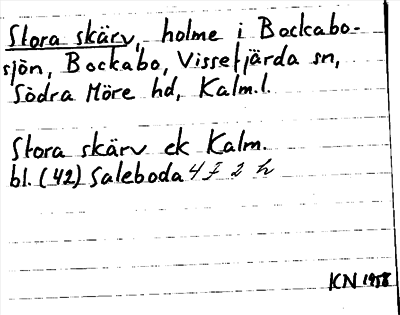 Stora skärv, holme i Bockabo-
sjön, Bockabo, Vissefjärda sn,
Södra Möre hd, Kalm. l.
Stora skärv ek Kalm.
bl. (42) Saleboda 4 F 2 h
KN 1958